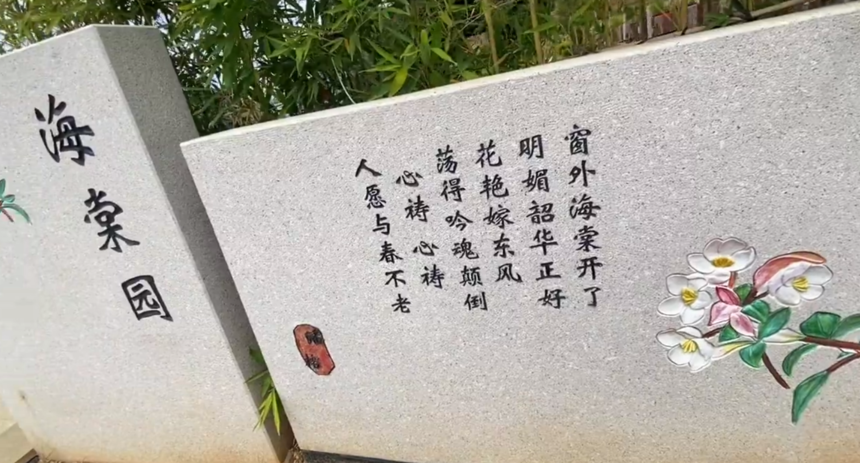 海棠园
窗外海棠开了
明媚韶华正好
花艳嫁东风
荡得吟魂颠倒
心祷心祷
人愿与春不老